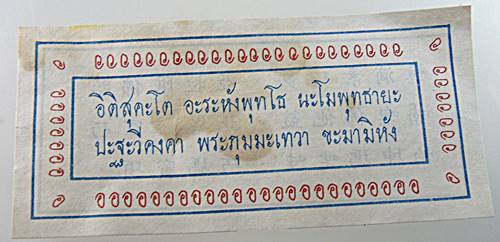 อิติสุคะโต อะระหังพุทโธ นะโมพุทธายะ
ปะฐะวีคงคา พระภุมมะเทวา ขะมามิหัง